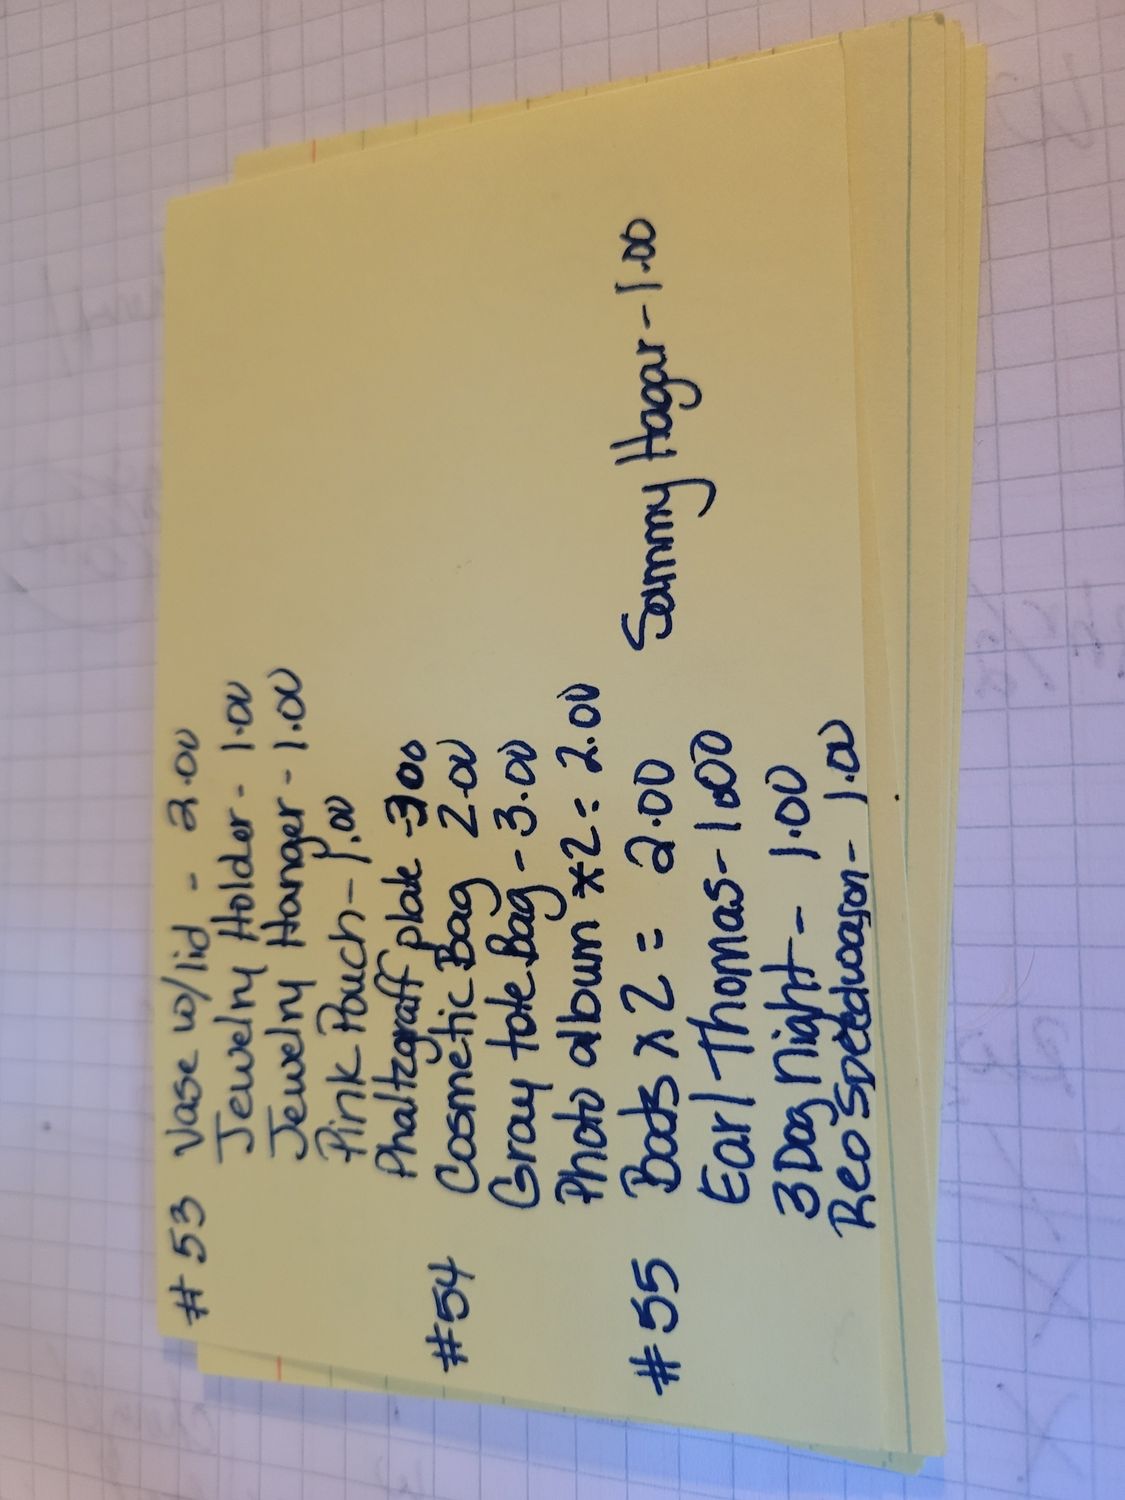 #53 Vase w/lid - 2.00
Jewelry Holder - 1.00
Jewelry Hanger - 1.00
Pink Pouch - 1.00
Phaltzgraff plate - 300
#54 Cosmetic Bag 2.00
Gray tote Bag - 3.00
Photo album *2 = 2.00
#55 x 2 = 2.00 Sammy Hagar - 1.00
Earl Thomas - 1.00
3 Dog Night - 1.00
Reo Speedwagon - 1.00